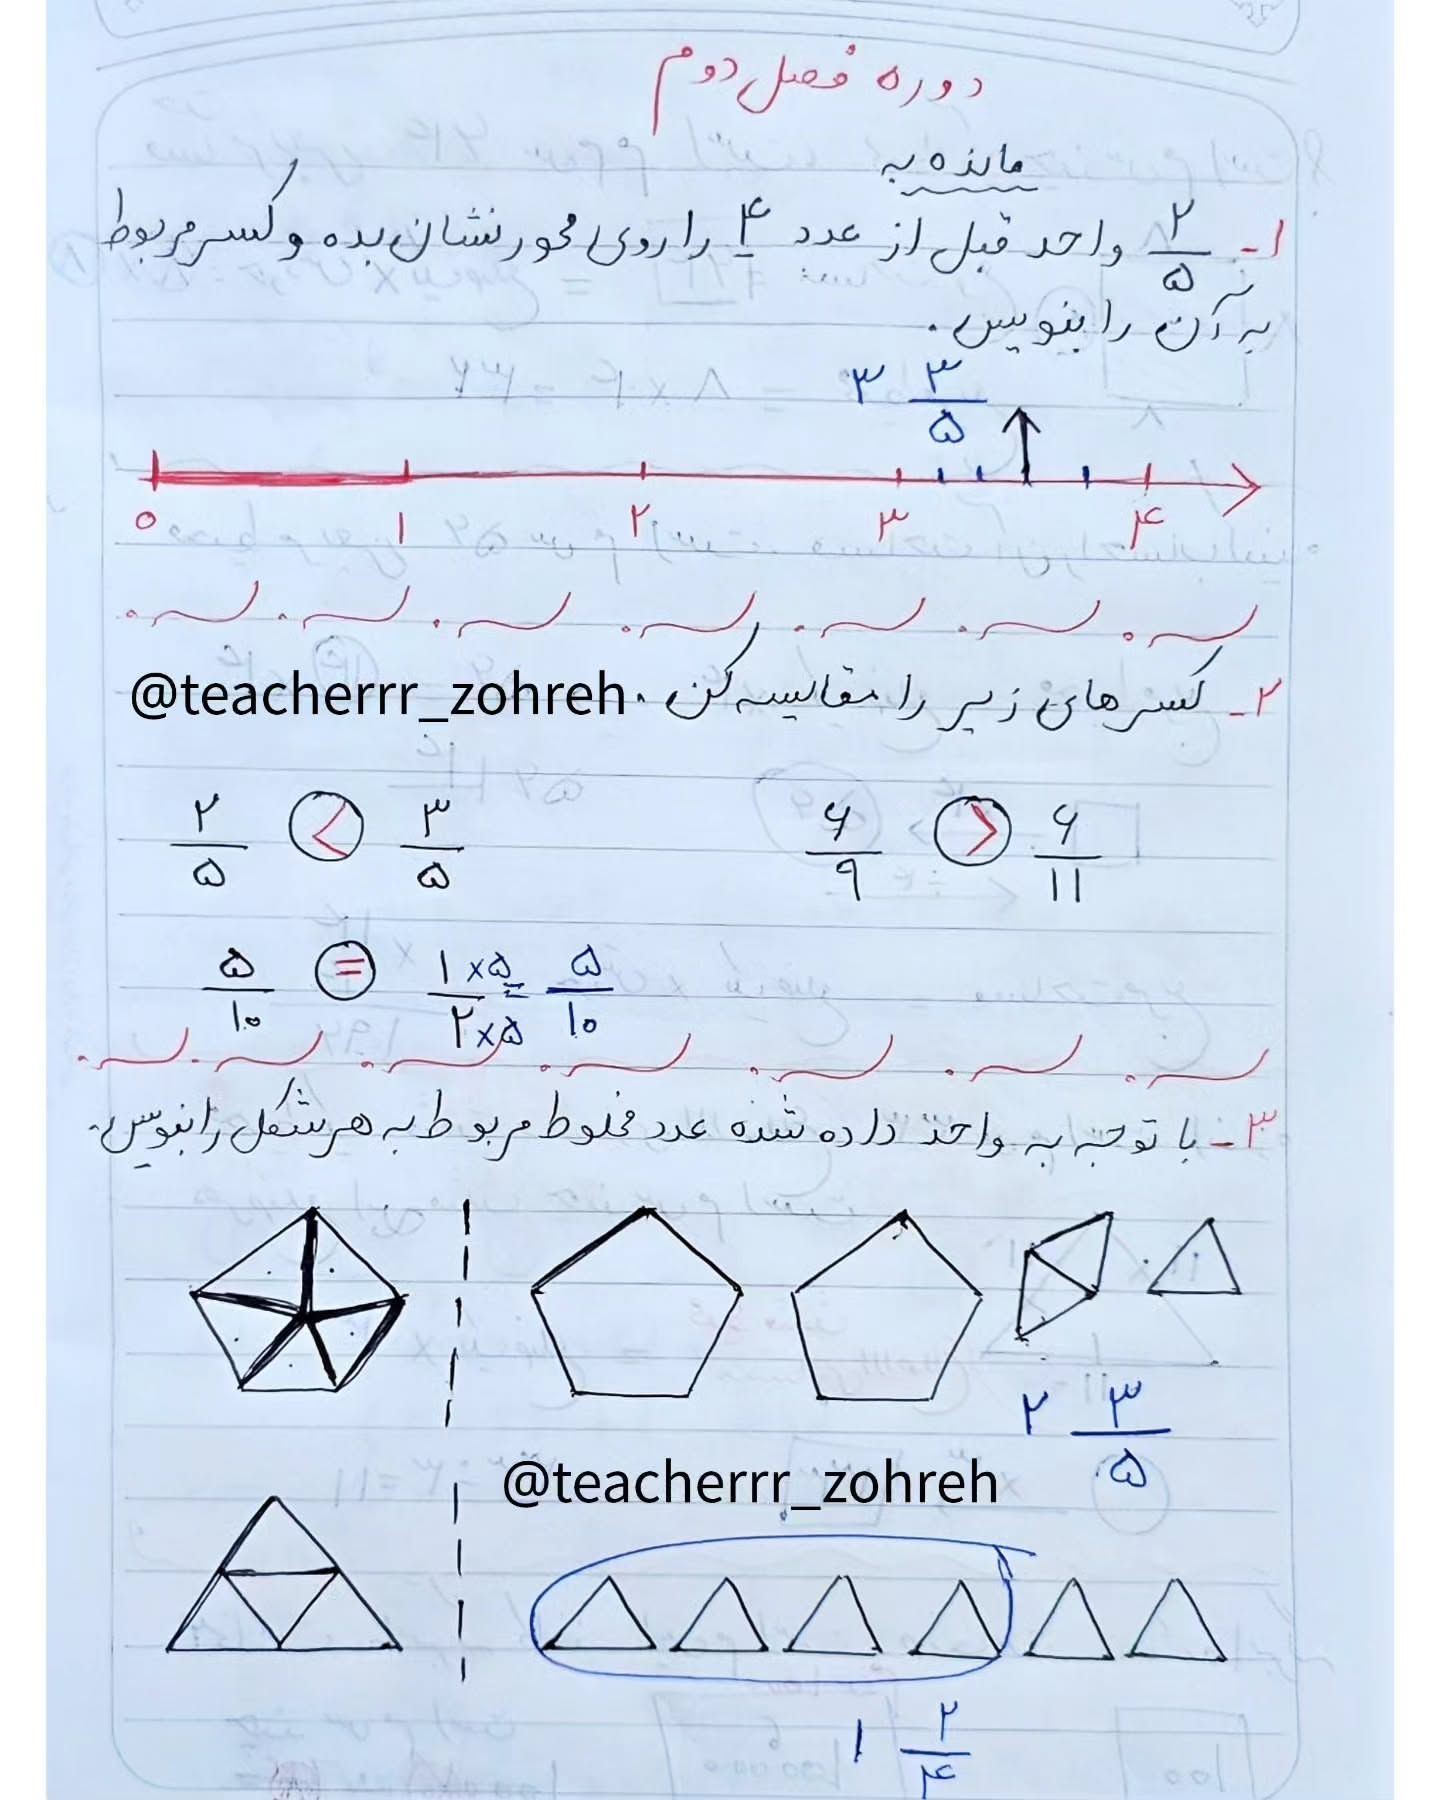 دوره فصل دوم
مانده به
۱- ۲/۵ واحد قبل از عدد ۴ را روی محور نشان بده و کسر مربوط
به آن را بنویس.
۳ ۳/۵
۰ ۱ ۲ ۳ ۴
۲- کسرهای زیر را مقایسه کن. @teacherrr_zohreh
۲/۵ < ۳/۵ ۶/۹ > ۶/۱۱
۵/۱۰ = ۱×۵/۲×۵ = ۵/۱۰
۳- با توجه به واحد داده شده عدد مخلوط مربوط به هر شکل را بنویس.
۲ ۳/۵
@teacherrr_zohreh
۱ ۲/۴